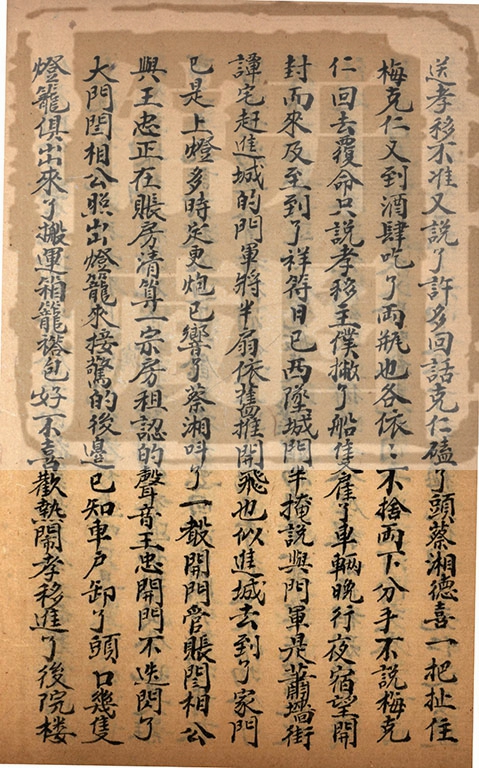 送孝移不准又說了許多回話克仁磕了頭蔡湘德喜一把扯住
梅克仁又到酒肆吃了兩瓶也各依〻不捨兩下分手不說梅克
仁回去覆命只說孝移主僕撇了船隻雇了車輛晚行夜宿望開
封而來及至到了祥符日已西墜城門半掩說與門軍是蕭墻街
譚宅赶進城的門軍將半扇依舊推開飛也似進城去到了家門
已是上燈多時定更炮已響了蔡湘呌了一聲開門管賬閆相公
與王忠正在賬房清算一宗房租認的聲音王忠開門不迭閃了
大門閆相公照出燈籠來接驚的後邊已知車户卸了頭口幾隻
燈籠俱出來了搬運箱籠褡包好不喜歡熱鬧孝移進了後院楼